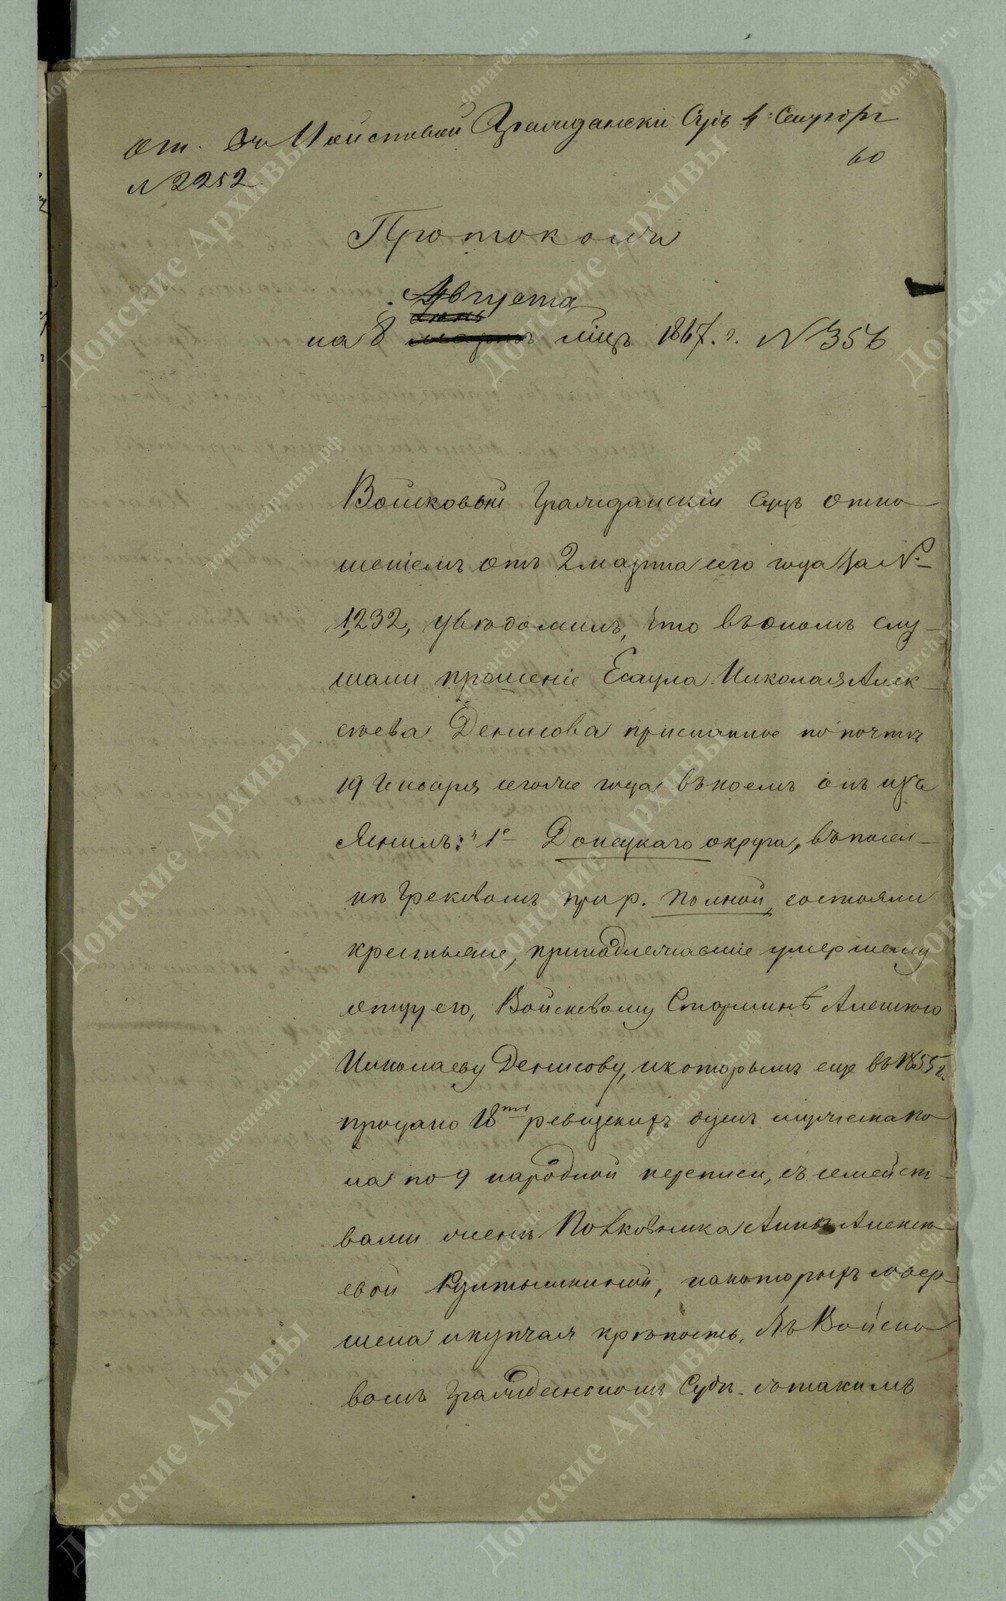 От. въ Войсковой Гражданскій Судъ 4 Сентября
60
№ 2252
Протоколъ
Августа
Іюнь
на 8 мартъ мцъ 1867. г. № 356
Войсковый Гражданскій Судъ отно
шеніемъ отъ 2 марта сего года за №
1,232, увѣдомилъ, что въ ономъ слу-
шали прошеніе Есаула Николая Алек-
сѣева Денисова присланное по почтѣ
19 Генваря сего же года въ коемъ онъ изъ
яснилъ: "1е Донецкаго округа, въ посел-
кѣ Грековомъ при р. Полной, состояли
крестьяне, принадлежавшіе умершему
отцу его, Войсковому Старшинѣ Алексѣю
Николаеву Денисову, изкоторыхъ еще въ 1855 г.
продано 18ть ревизскихъ душъ мужеска по
ла по 9 народной переписи, съ семейст-
вами женѣ Полковника Аннѣ Алексѣ
евой, на которыхъ совер-
шена и купчая крѣпость, въ Войско
вомъ Гражданскомъ Судѣ. съ такимъ